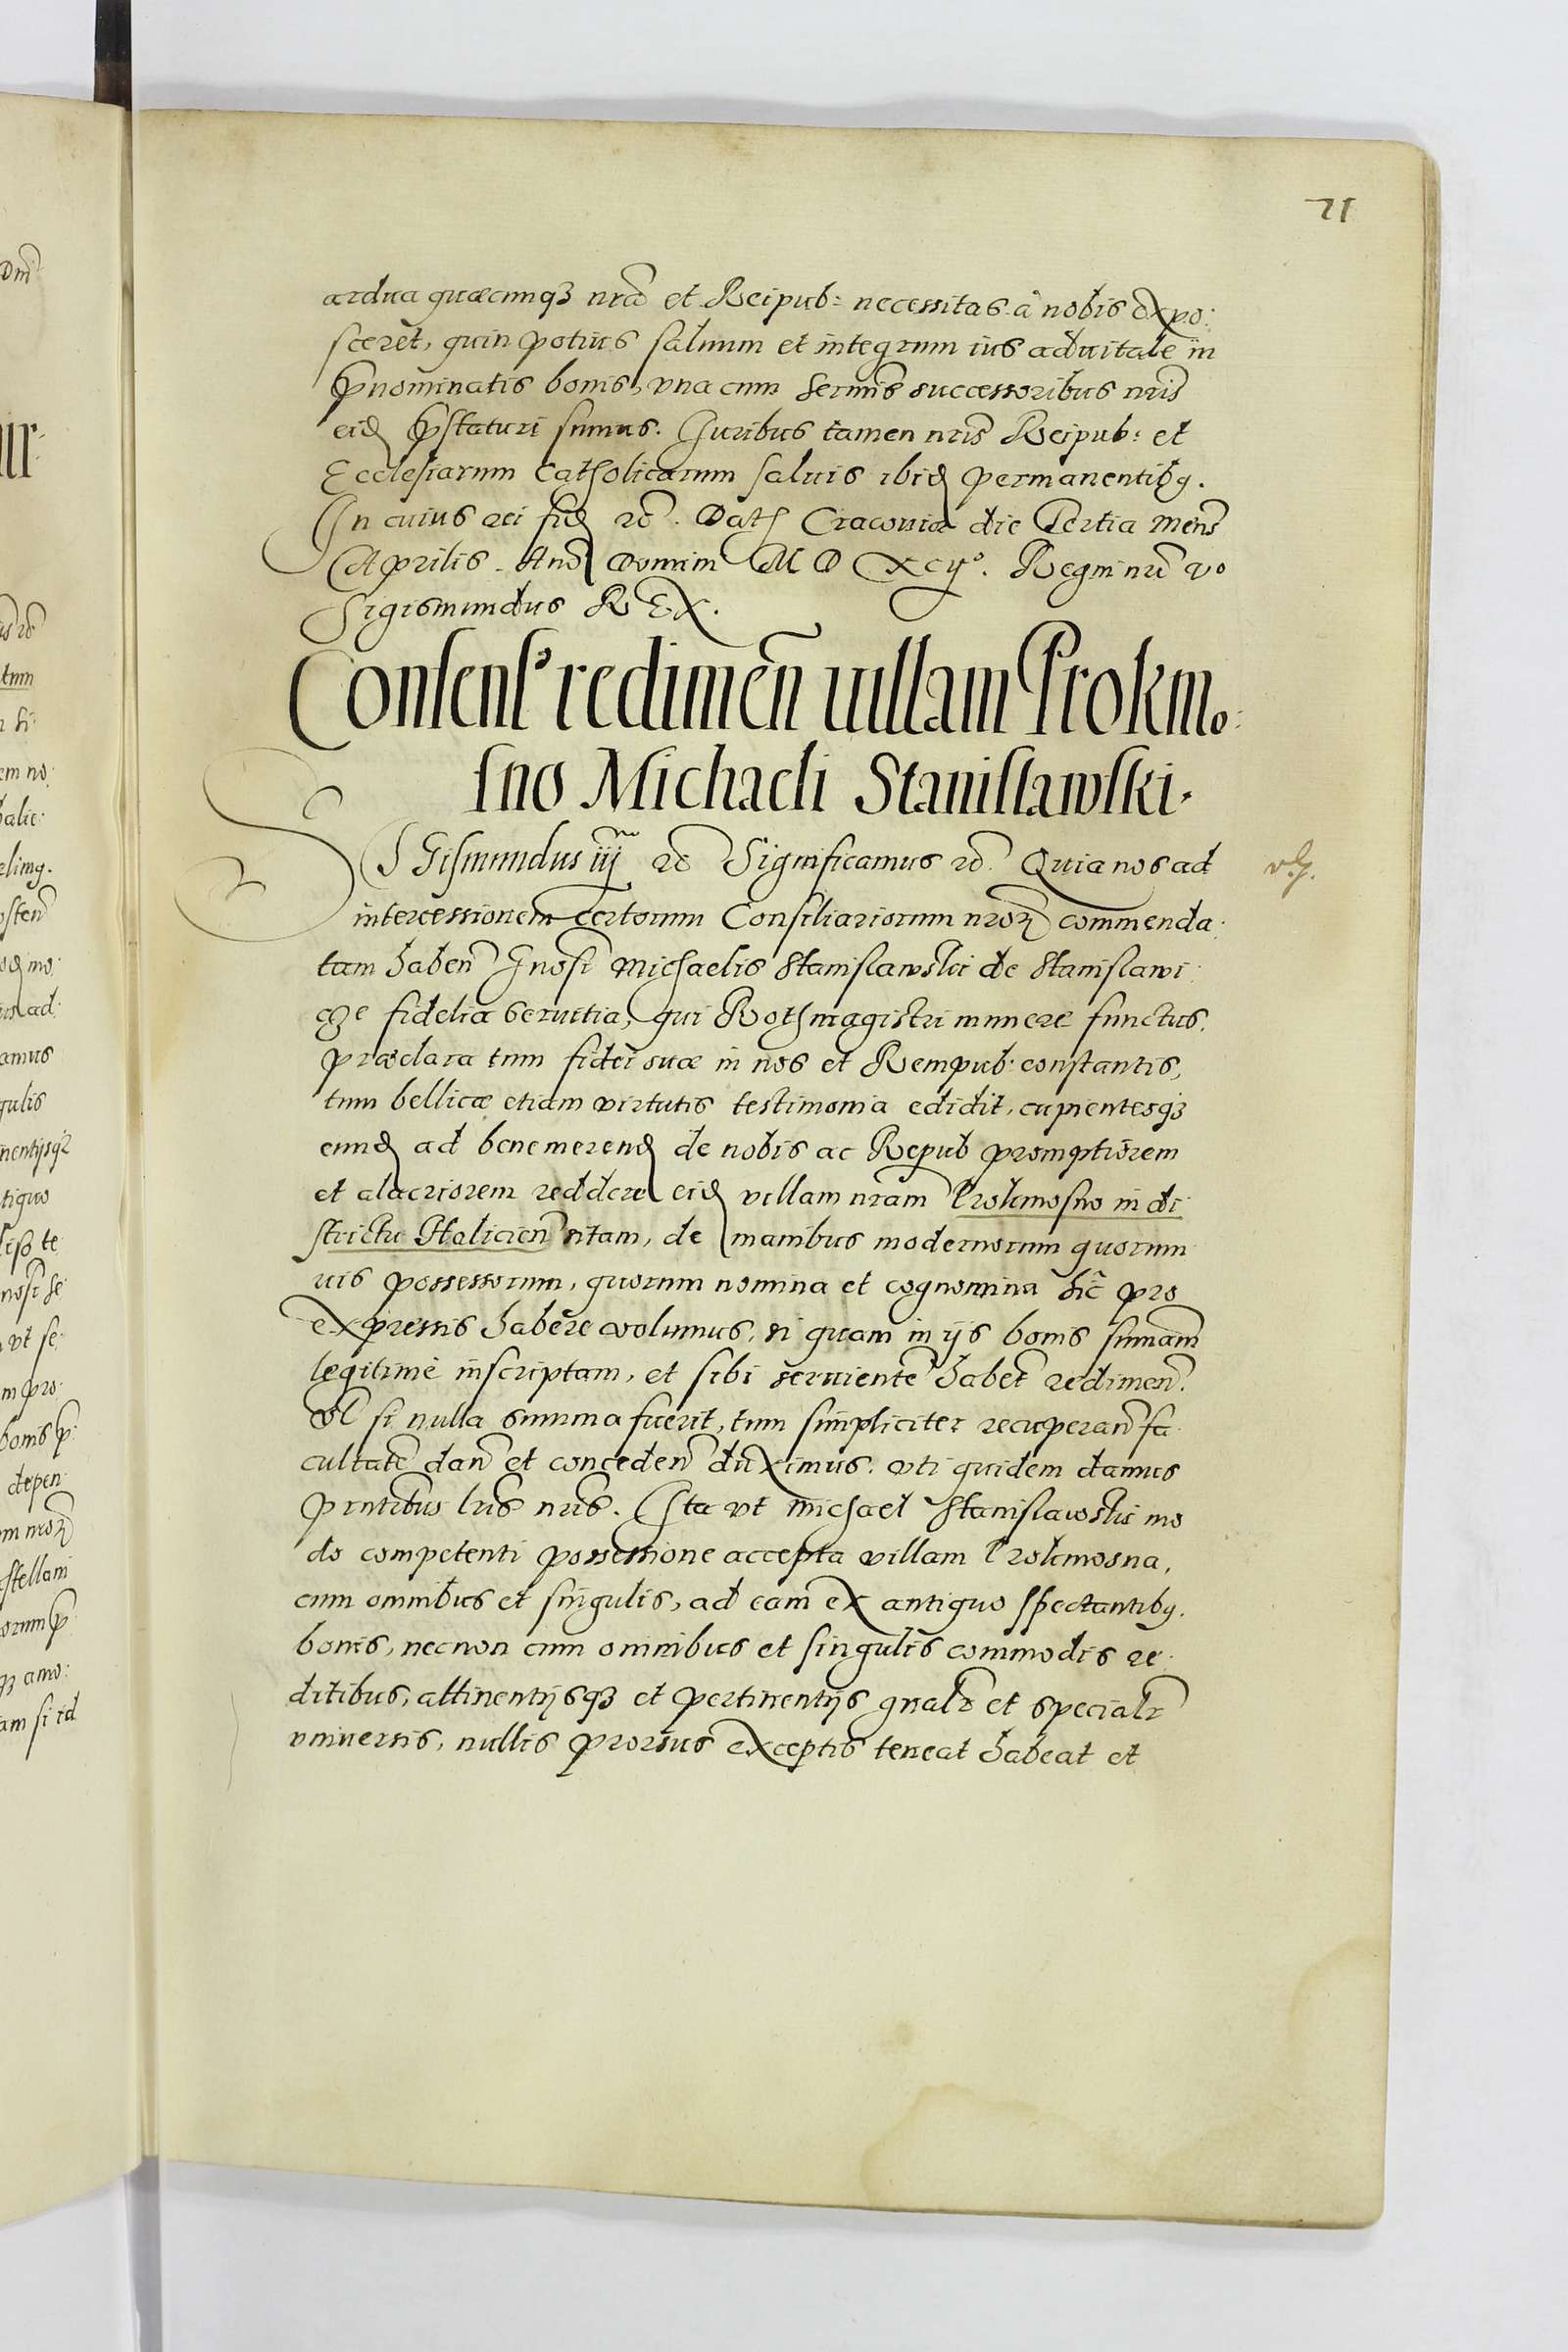 21
ardua quæcunq₃ nrã et Reipub: necessitas à nobis expo:
sceret, quin potius saluum et integrum ius aduitale in
p̄nominatis bonis, vna cum sermis̃ successoribus nris̃
eid̨ p̄staturi sumus. Iuribus tamen nris̃ Reipub: et
Ecclesiarum Catholicarum saluis ibid̨ permanentibq.
In cuius rei fid̨ &c̃. Dat̨ Cracouiæ die Tertia Mens̃
Aprilis. Anõ Domini M D XCIJº. Regni nri̇̃ vº
Sigismundus REX.
Consens⁹ redimeñ uillam Prokmo:
sno Michaeli Stanislawski.
SIGismundus iij &c̃ Significamus &c̃. Quia nos ad
v.G.
intercessionem certorum Consiliariorum nroꝝ commenda:
tam habeñ Gnosi̇̃ Michaelis Stanislawski de Stanislawi:
cze fidelia seruitia, qui Rothmagistri munere functus,
præclara tum fidei suæ in nos et Rempub: constantis,
tum bellicæ etiam virtutis testimonia edidit, cupientesq₃
eund̨ ad benemerend̨ de nobis ac Repub promptiorem
et alacriorem reddere eid̨ villam nram̃ Prokmosno in di:
strictu Halicieñ sitam, de manibus modernorum quorum
uis possessorum, quorum nomina et cognomina hic̃ pro
expressis habere volumus, si quam in ijs bonis summam̃
legitimè inscriptam, et sibi seruientẽ habet̃ redimeñ.
Vl̃ si nulla summa fuerit, tum simpliciter recuperañ fa:
cultatẽ dañ et concedeñ duximus. vti quidem damus
pn̄tibus lris̃ nris̃. Ita vt Michael Stanislawski mo
do competenti possessione accepta villam Prokmosna,
cum omnibus et singulis, ad eam ex antiquo spectantibq.
bonis, necnon cum omnibus et singulis commodis re:
ditibus, attinentijsq₃ et pertinentijs gñalr̃ et specialr̃
vniuersis, nullis prorsus exceptis teneat habeat et